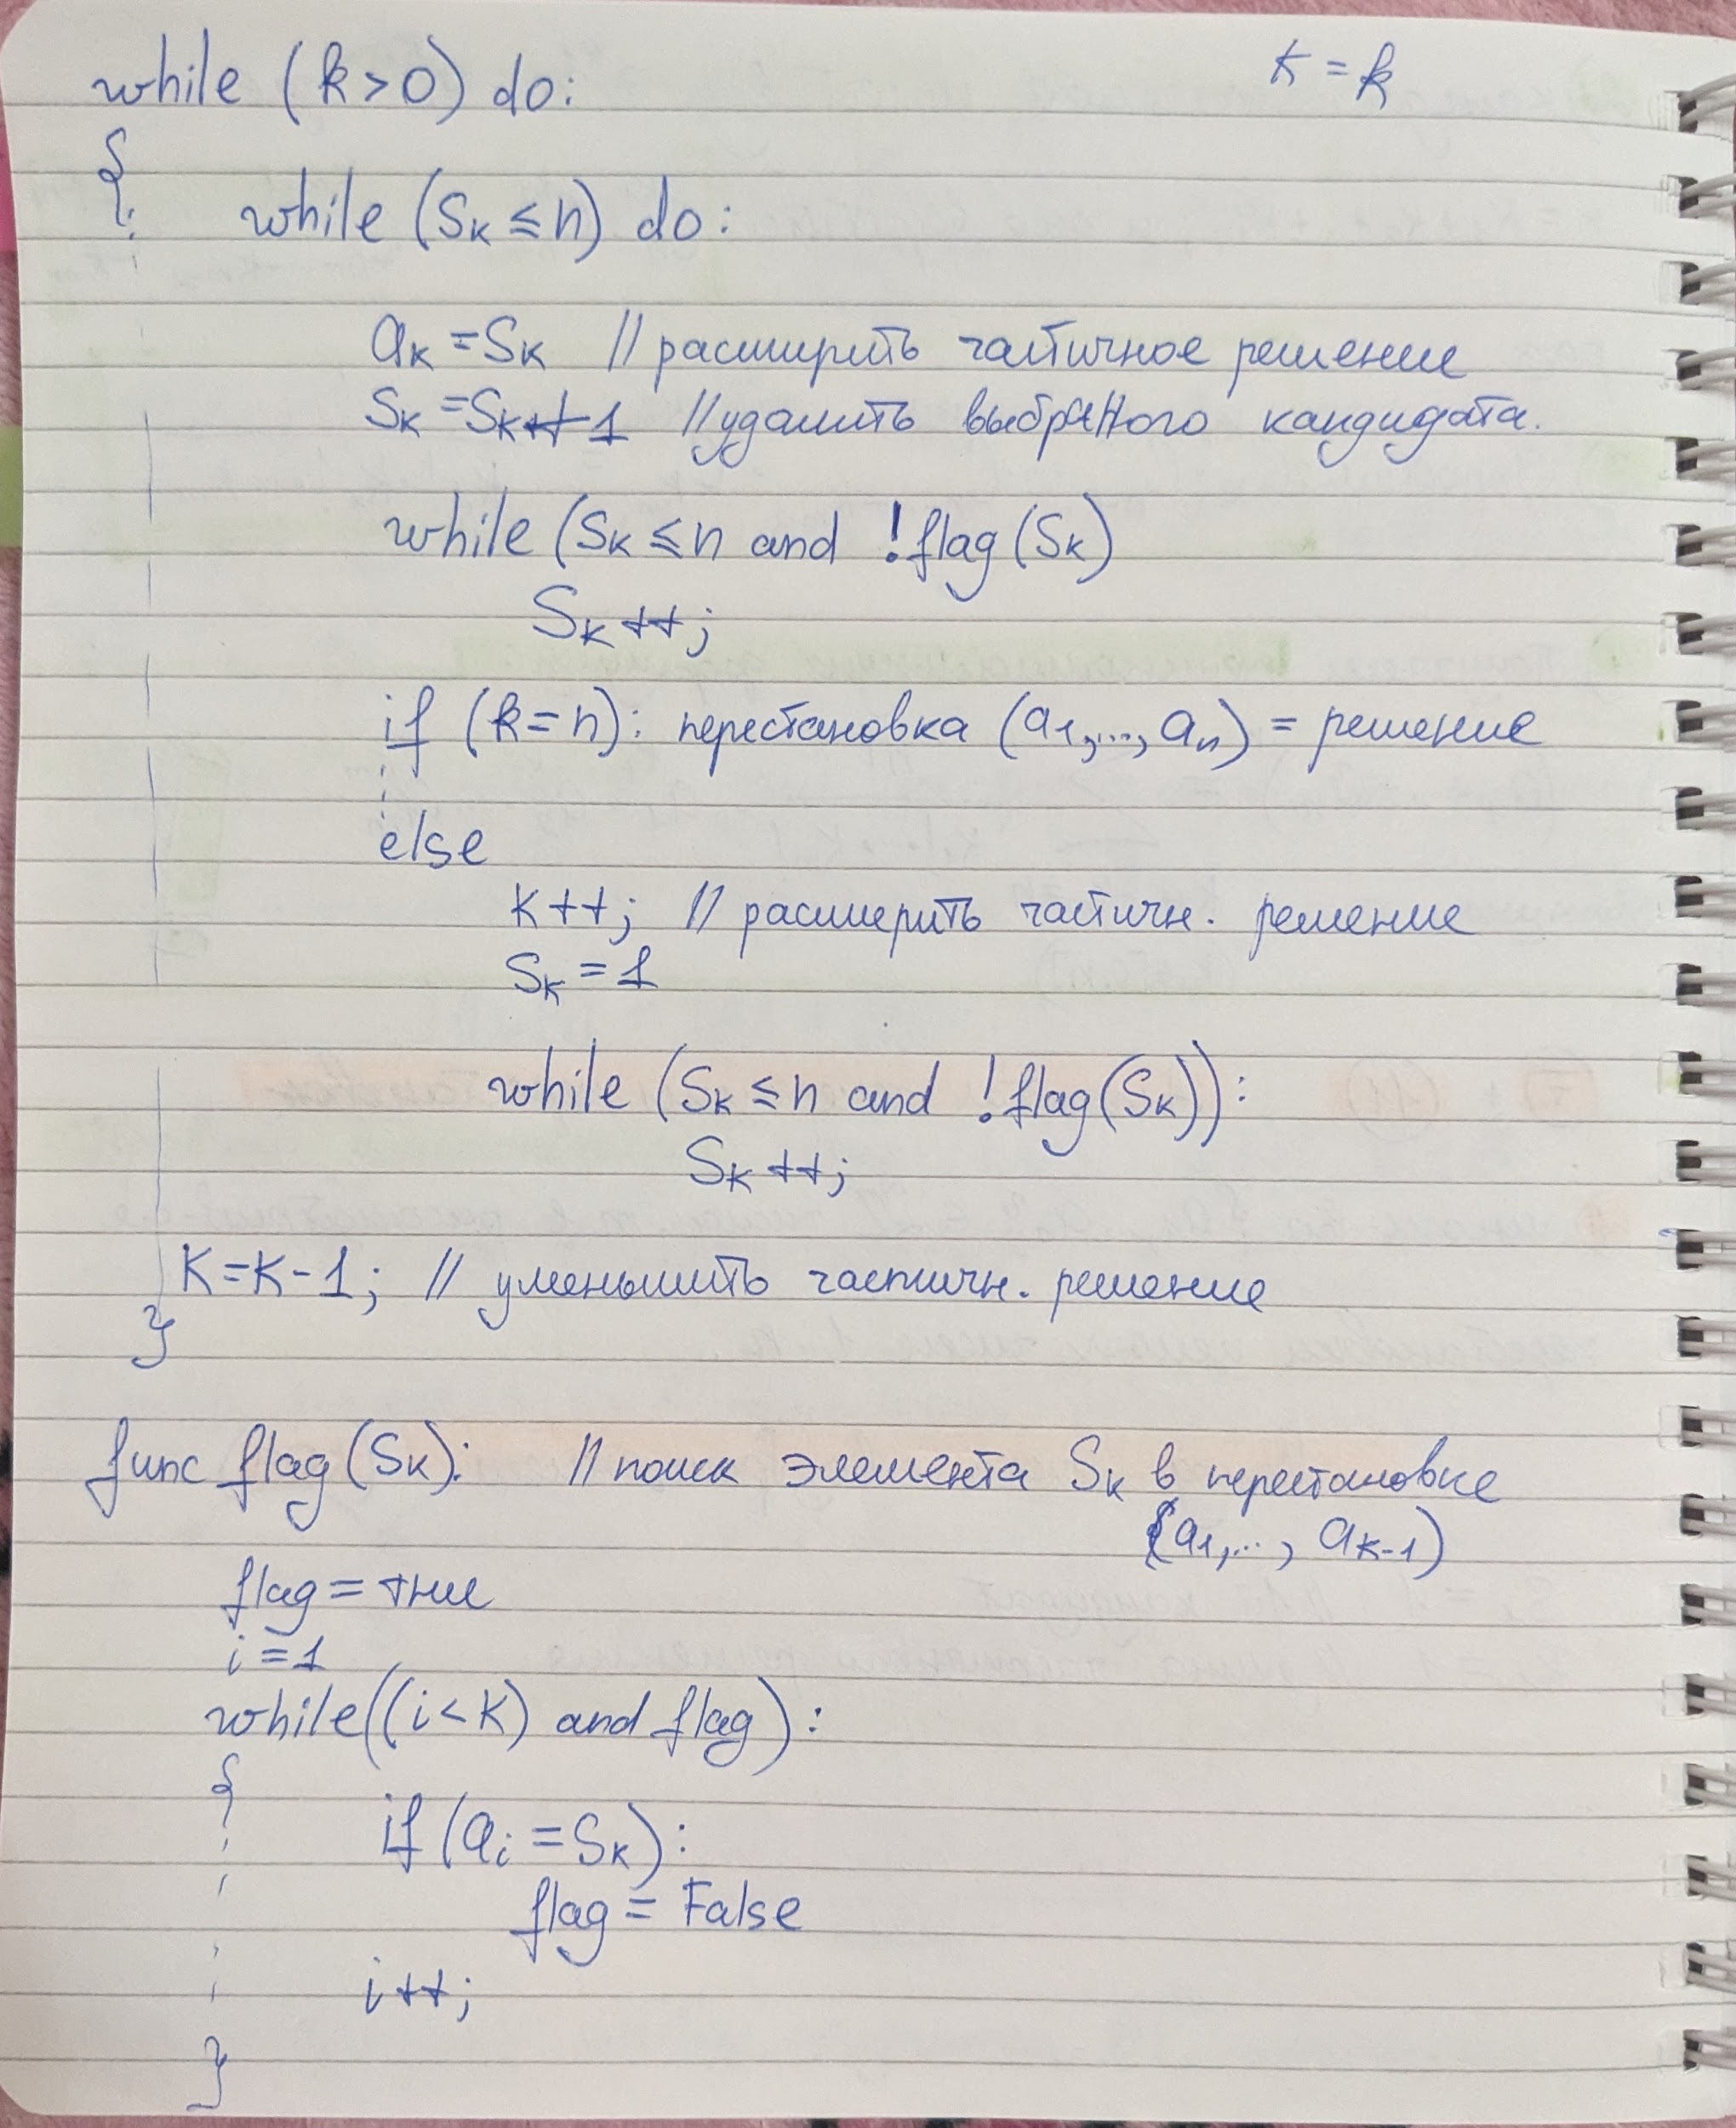 while (k>0) do:
K = k
{
while (Sₖ ≤ n) do:
aₖ = Sₖ // расширить частичное решение
Sₖ = Sₖ+1 // удалить выбранного кандидата.
while (Sₖ ≤ n and !flag(Sₖ)
Sₖ++;
if (k=n): перестановка (a₁,..., aₙ) = решение
else
k++; // расширить частичн. решение
Sₖ = 1
while (Sₖ ≤ n and !flag(Sₖ)):
Sₖ++;
K=K-1; // уменьшить частичн. решение
}
func flag(Sₖ): // поиск элемента Sₖ в перестановке
(a₁,..., aₖ₋₁)
flag = true
i = 1
while((i<k) and flag):
{
if (aᵢ = Sₖ):
flag = False
i++;
}